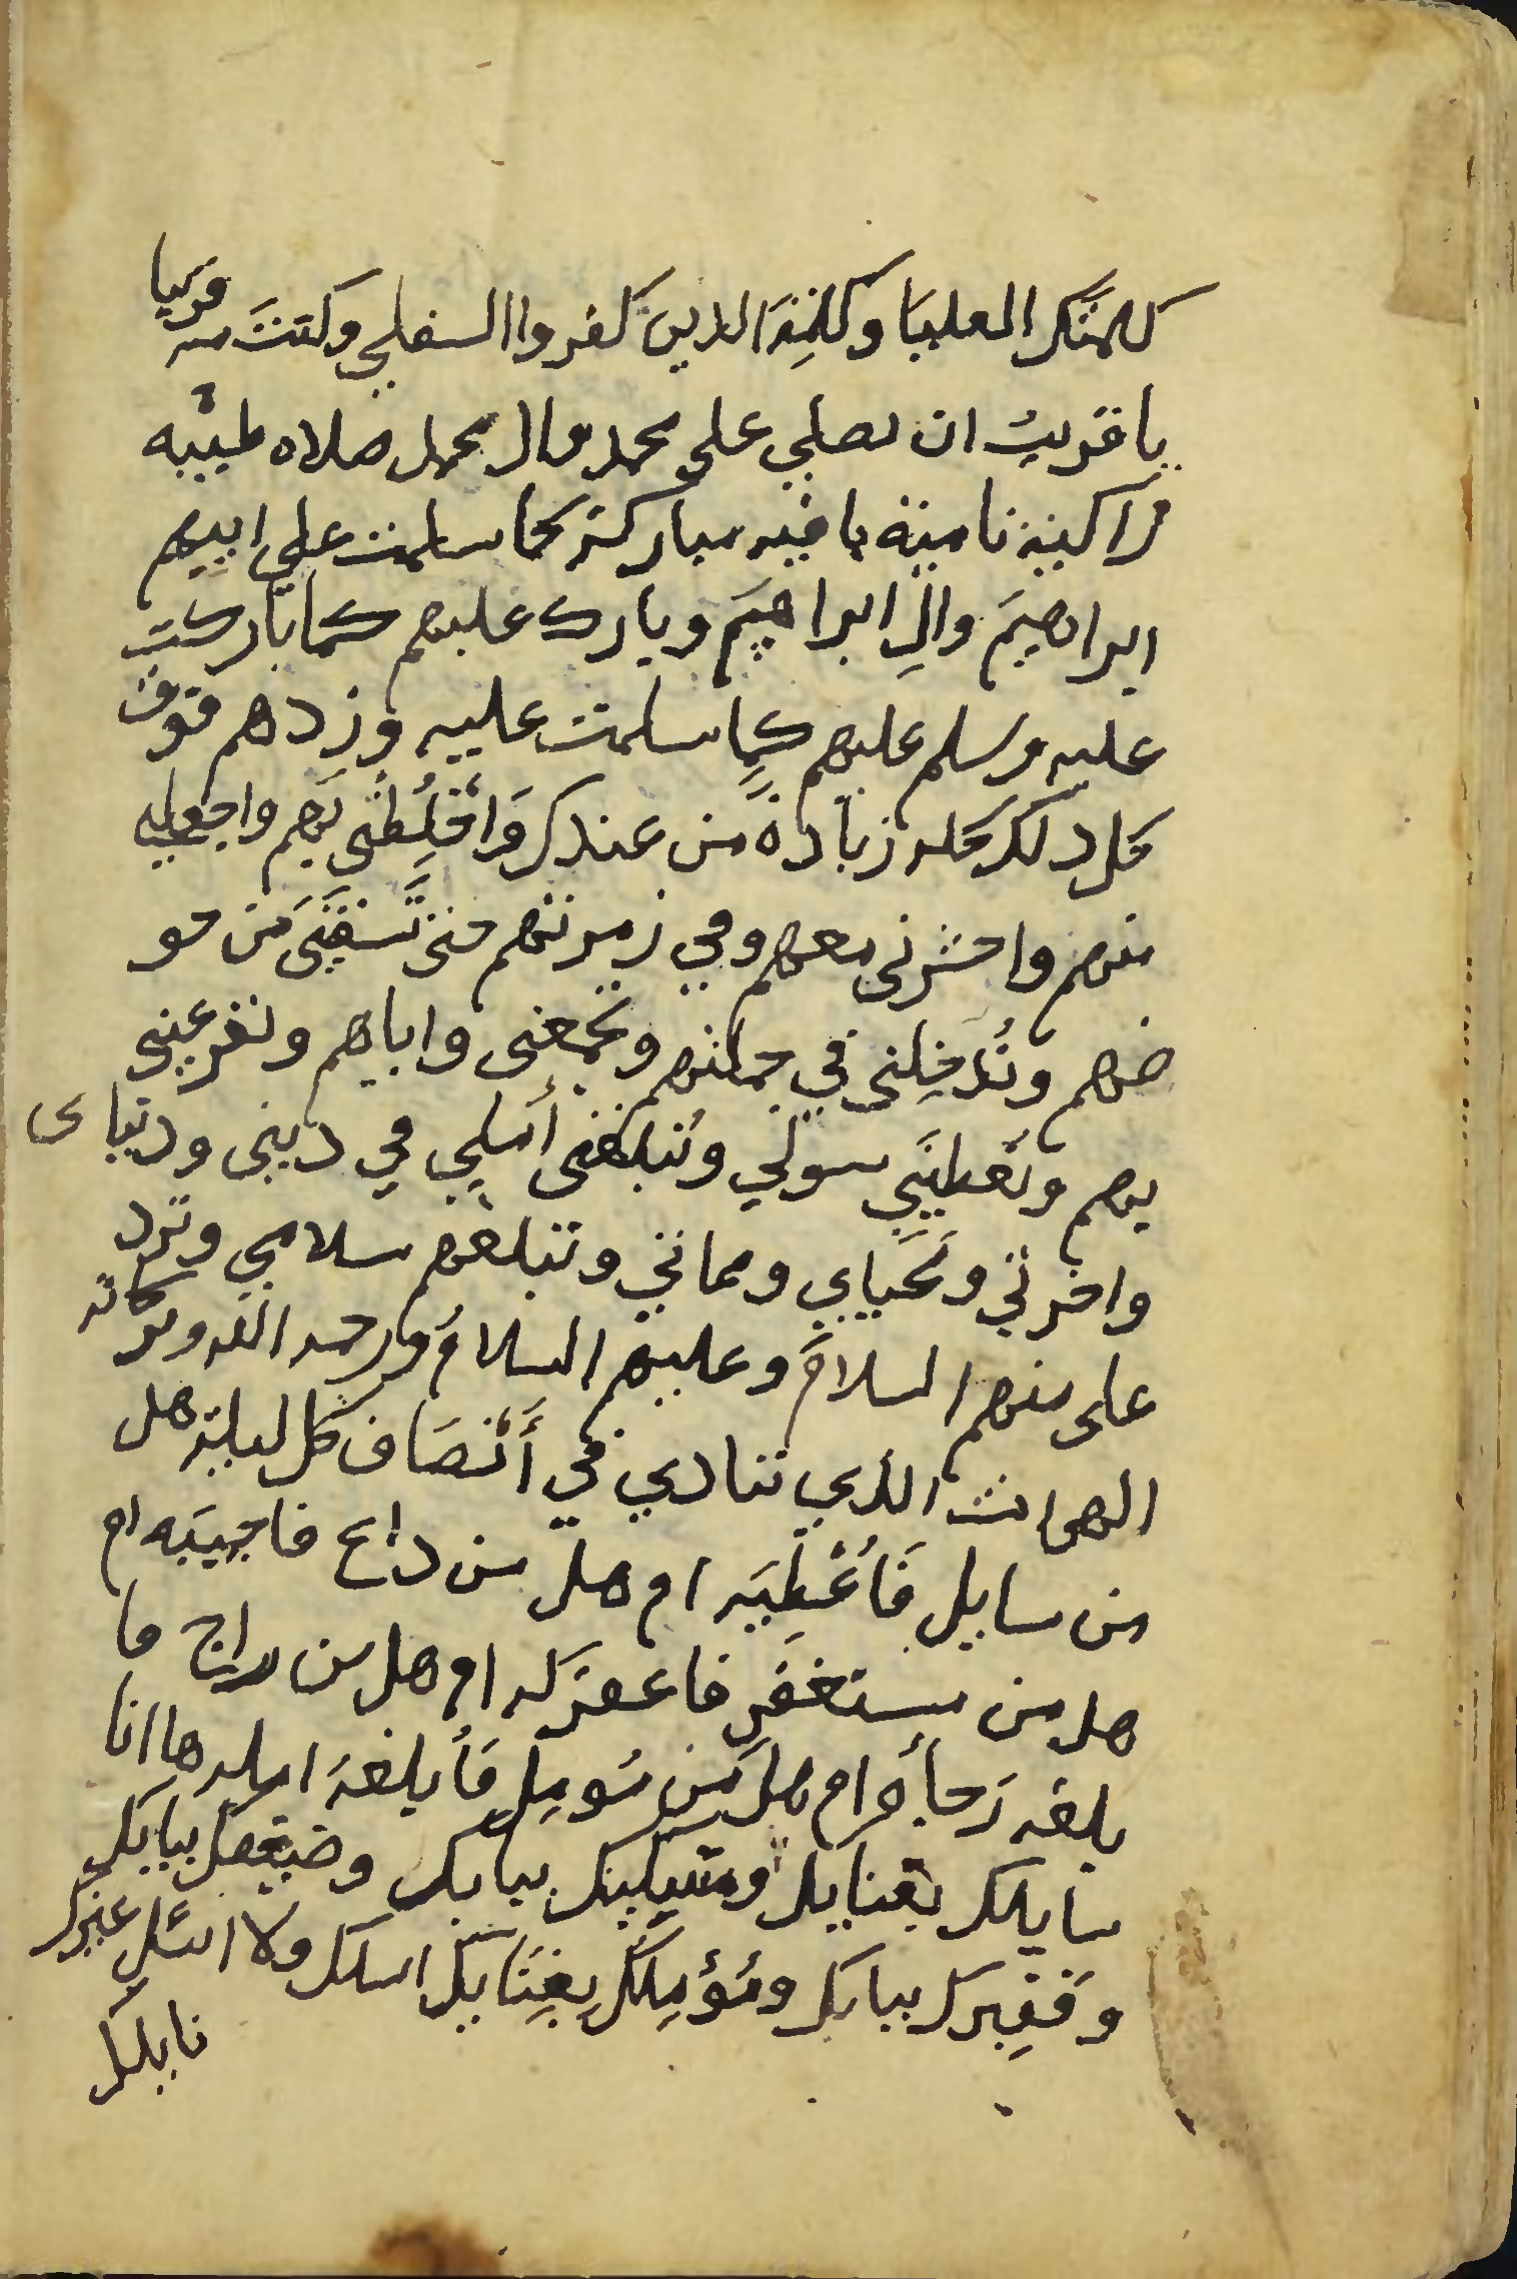 كلمتك العليا وكلمة الذين كفروا السفلي وكنت منه قريبا
يا قريب ان تصلي على محمد وال محمد صلاه طيبه
زاكية نامية باقيه مباركة كما سلمت علي ابيهم
ابراهيم وال ابراهيم وبارك عليهم كما باركت
عليه وسلم عليهم كما سلمت عليه وزدهم فوق
كل ذلك كله زيادة من عندك واخلطني بهم واجعلني
منهم واحشرني معهم وفي زمرتهم حتى تسقيني من حو
ضهم وتدخلني في جملتهم وتجمعني واياهم وتقر عيني
بهم وتعطيني سولي وتبلغني أملي في ديني ودنياى
واخرتي ومحياي ومماتي وتبلغهم سلامي وترد
على منهم السلام وعليهم السلام ورحمه الله وبركاته
الهى انت الذي تنادي في أنصاف كل ليلة هل
من سايل فأعطيه ام هل من داع فاجيبه ام
هل من مستغفر فاغفر له ام هل من راج فا
بلغه رجأه ام هل من مومل فأبلغه امله ها انا
سايلك بفنايك ومسكينك ببابك وضعيفك ببابك
وفقيرك ببابك ومؤملك بفنايك اسلك ولا اسئل غيرك
نايلك